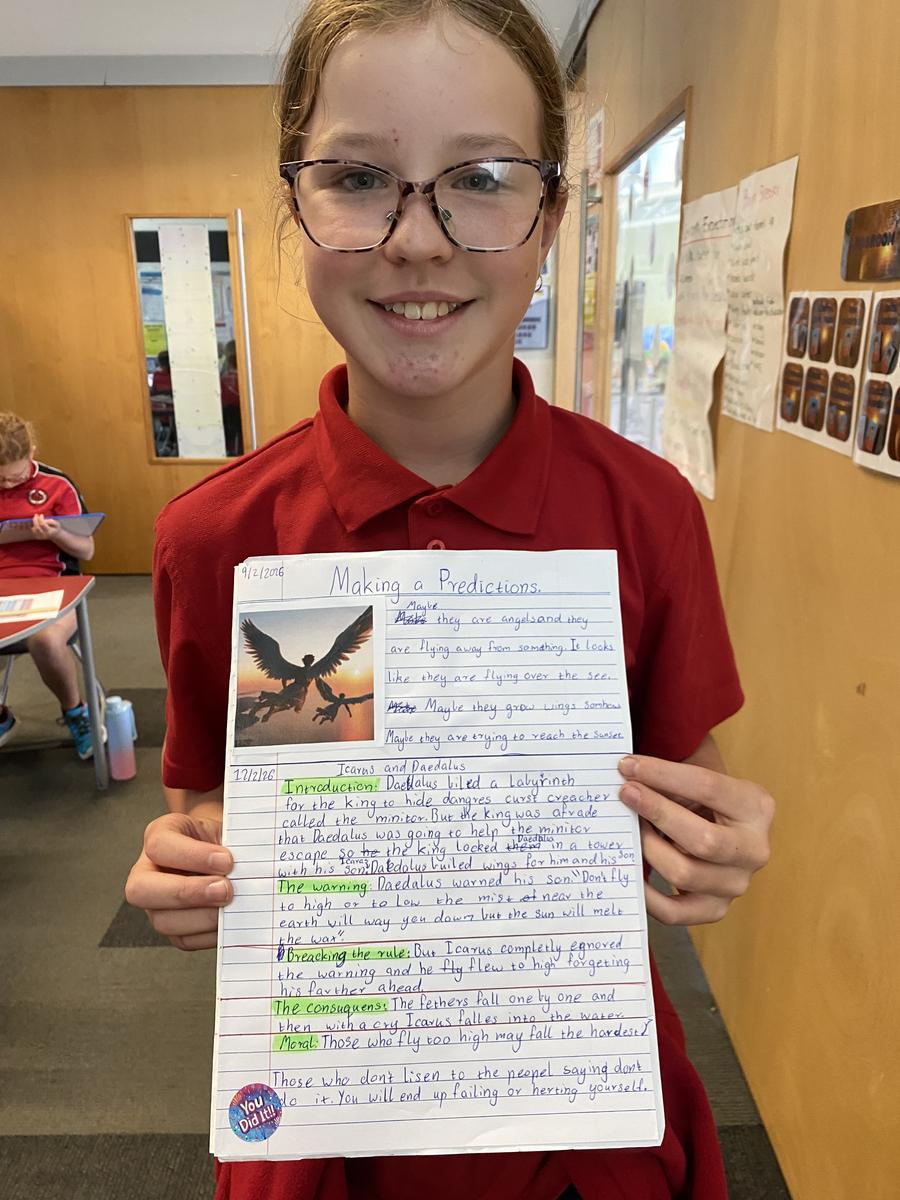 9/2/2026
Making a Predictions.
Maybe
they are angels and they
are flying away from somthing. It looks
like they are flying over the see.
Maybe they grow wings somhow
Maybe they are trying to reach the sunset
17/2/26
Icarus and Daedalus
Introduction: Daedalus biled a Labyrinth
for the king to hide dangres curst creacher
called the minitor. But the king was afrade
that Daedalus was going to help the minitor
escape so he the king locked them Daedalus in a tower
with his son. Icarus Daedalus builed wings for him and his son
The warning: Daedalus warned his son. "Dont fly
to high or to low the mist of near the
earth will way you down but the sun will melt
the wax".
Breacking the rule: But Icarus completly egnored
the warning and he fly flew to high forgeting
his farther ahead.
The consuquens: The fethers fall one by one and
then with a cry Icarus falles into the water.
Moral: Those who fly too high may fall the hardest
Those who don't lisen to the peopel saying dont
do it. You will end up failing or herting yourself.
You
Did It!!